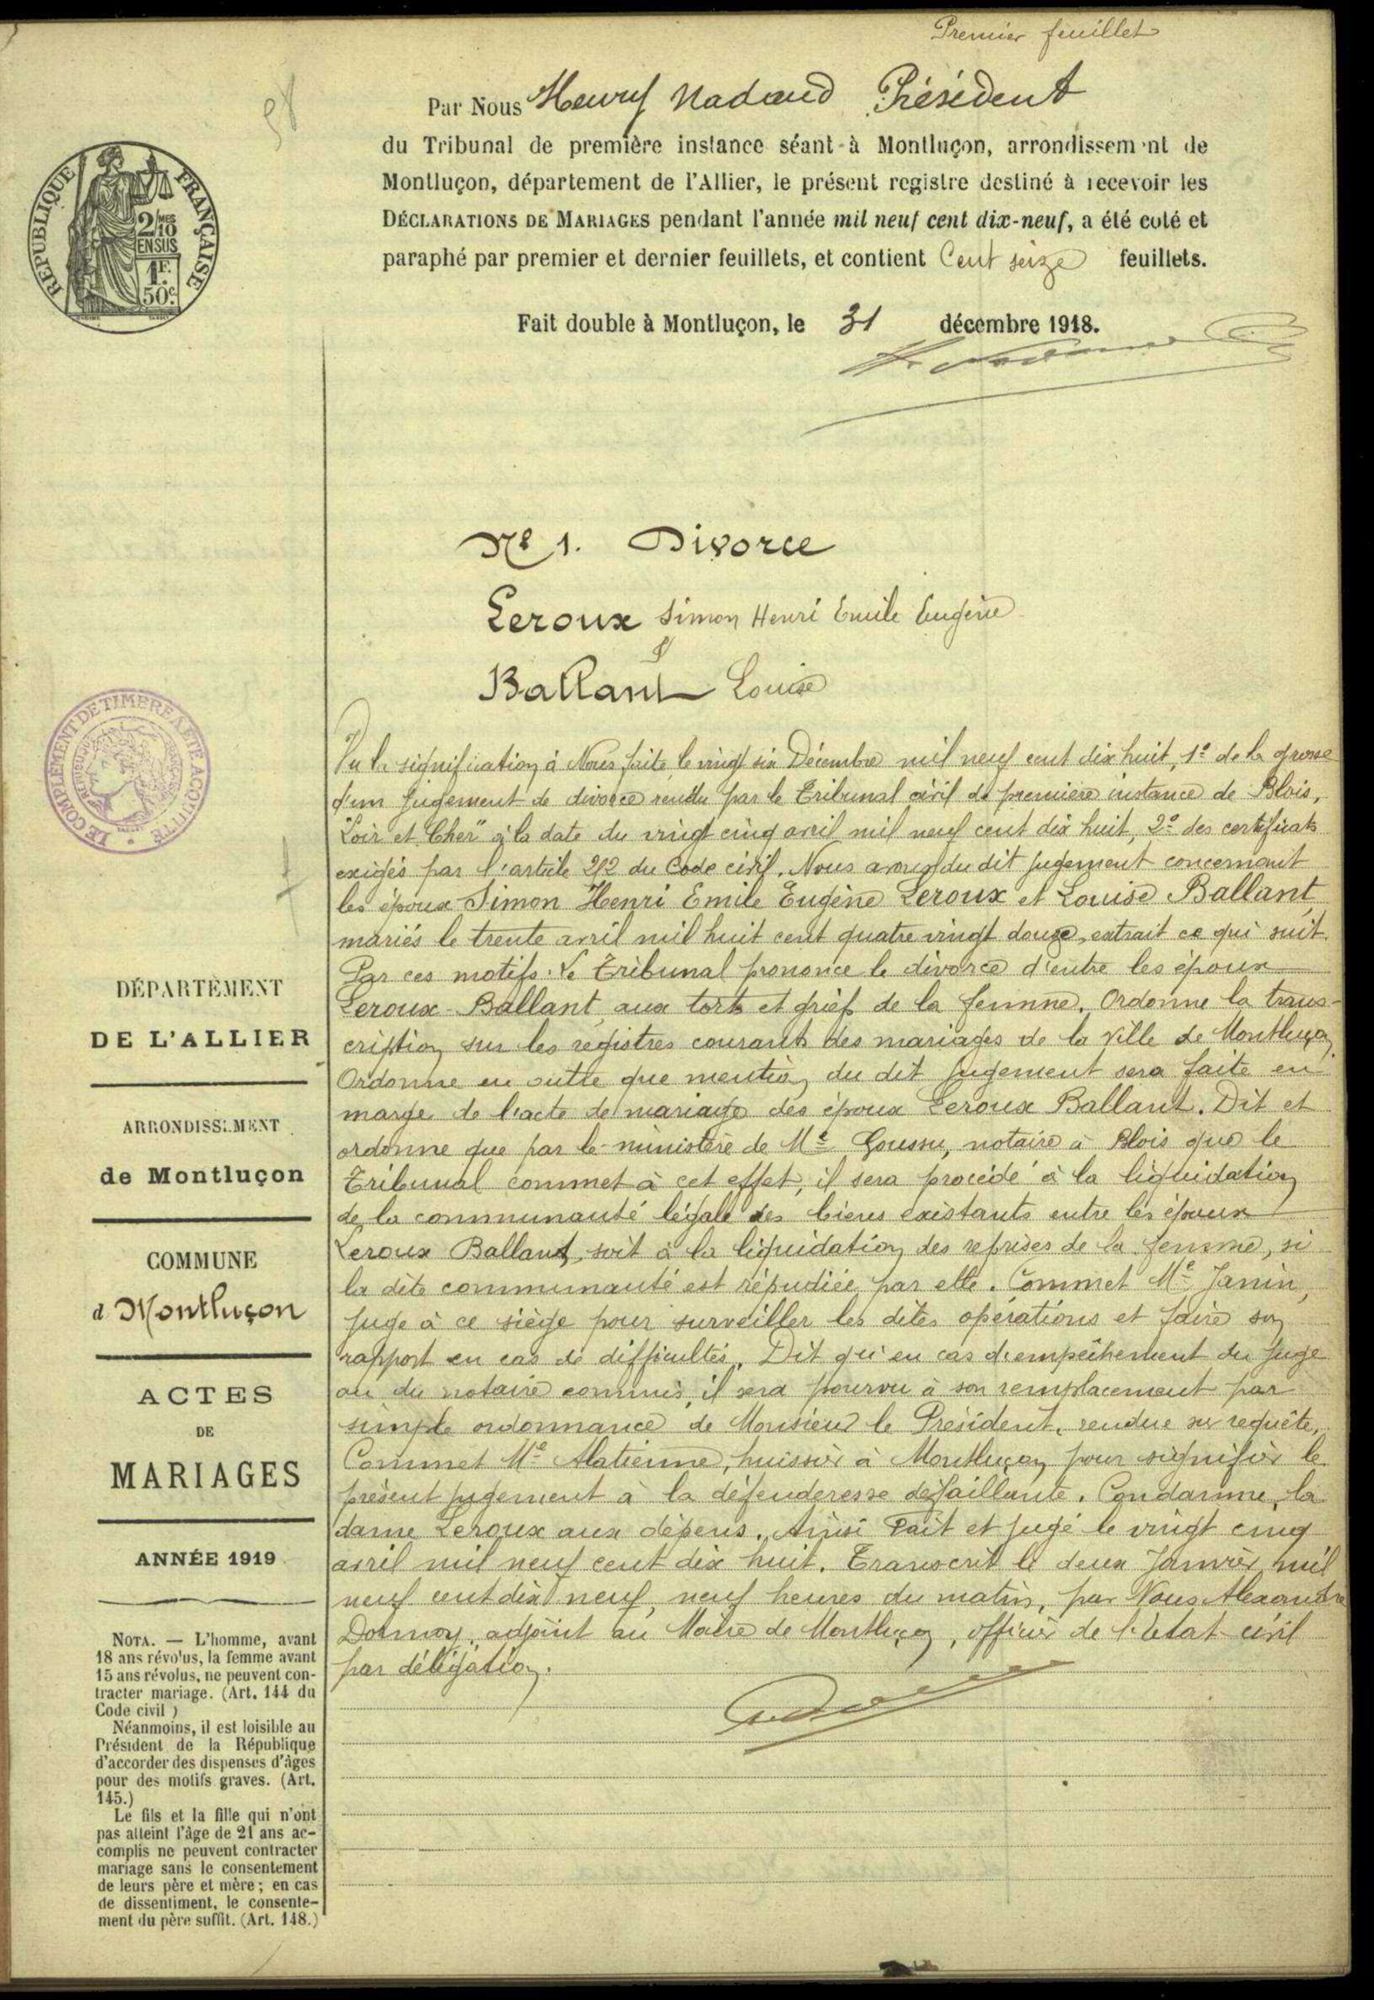 Premier feuillet
98
Par Nous Henry Nadaud Président
du Tribunal de première instance séant à Montluçon, arrondissement de
Montluçon, département de l'Allier, le présent registre destiné à recevoir les
DÉCLARATIONS DE MARIAGES pendant l'année mil neuf cent dix-neuf, a été coté et
paraphé par premier et dernier feuillets, et contient Cent seize feuillets.
Fait double à Montluçon, le 31 décembre 1918.
RÉPUBLIQUE FRANÇAISE
2/10 MES
EN SUS
1F.
50c
No 1. Divorce
Leroux Simon Henri Emile Eugène
&
Ballant Louise
LE COMPLÉMENT DE TIMBRE A ÉTÉ ACQUITTÉ
Vu la signification à Nous faite, le vingt six Décembre mil neuf cent dix huit, 1º de la grosse
d'un jugement de divorce rendu par le Tribunal civil de première instance de Blois,
"Loir et Cher" à la date du vingt cinq avril mil neuf cent dix huit, 2º des certificats
exigés par l'article 212 du Code civil. Nous avons du dit jugement concernant
les époux Simon Henri Emile Eugène Leroux et Louise Ballant,
mariés le trente avril mil huit cent quatre vingt douze, extrait ce qui suit.
Par ces motifs: Le Tribunal prononce le divorce d'entre les époux
Leroux-Ballant, aux torts et grief de la femme. Ordonne la trans-
cription sur les registres courants des mariages de la ville de Montluçon.
Ordonne en outre que mention du dit jugement sera faite en
marge de l'acte de mariage des époux Leroux Ballant. Dit et
ordonne que par le ministère de Me Goussu, notaire à Blois que le
Tribunal commet à cet effet, il sera procédé à la liquidation
de la communauté légale des biens existants entre les époux
Leroux Ballant, soit à la liquidation des reprises de la femme, si
la dite communauté est répudiée par elle. Commet Me Janin,
juge à ce siège pour surveiller les dites opérations et faire son
rapport en cas de difficultés. Dit qu'en cas d'empêchement du juge
ou du notaire commis, il sera pourvu à son remplacement par
simple ordonnance de Monsieur le Président, rendue sur requête,
Commet Me Alatienne, huissier à Montluçon pour signifier le
présent jugement à la défenderesse défaillante. Condamne la
dame Leroux aux dépens. Ainsi Fait et jugé le vingt cinq
avril mil neuf cent dix huit. Transcrit le deux Janvier mil
neuf cent dix neuf, neuf heures du matin, par Nous Alexandre
Dormoy, adjoint au Maire de Montluçon, officier de l'état-civil
par délégation.
DÉPARTEMENT
DE L'ALLIER
ARRONDISSEMENT
de Montluçon
COMMUNE
d Montluçon
ACTES
DE
MARIAGES
ANNÉE 1919
NOTA. — L'homme, avant
18 ans révolus, la femme avant
15 ans révolus, ne peuvent con-
tracter mariage. (Art. 144 du
Code civil )
Néanmoins, il est loisible au
Président de la République
d'accorder des dispenses d'âges
pour des motifs graves. (Art.
145.)
Le fils et la fille qui n'ont
pas atteint l'âge de 21 ans ac-
complis ne peuvent contracter
mariage sans le consentement
de leurs père et mère ; en cas
de dissentiment, le consente-
ment du père suffit. (Art. 148.)